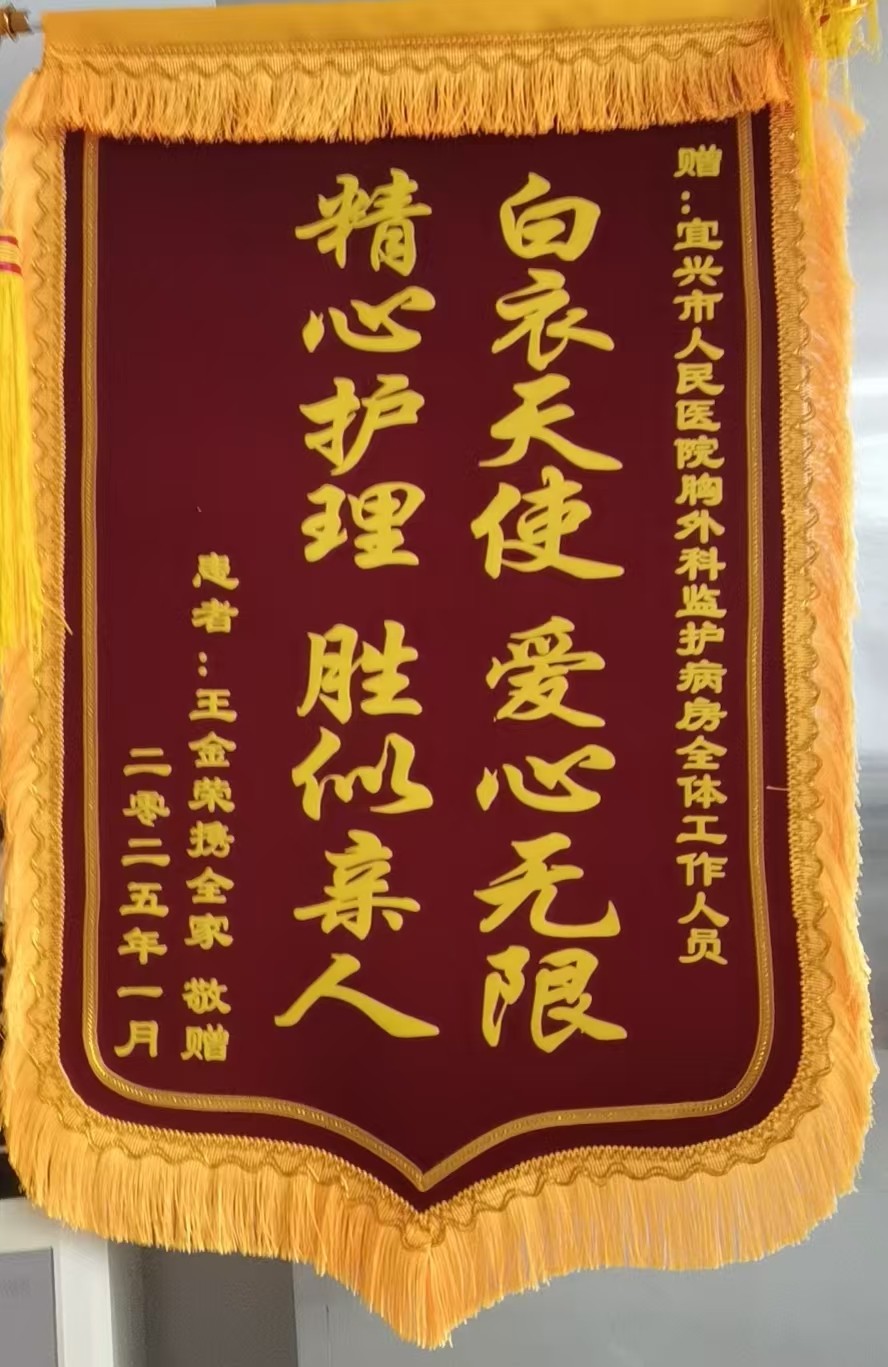 赠：宜兴市人民医院胸外科监护病房全体工作人员
白衣天使 爱心无限
精心护理 胜似亲人
患者：王金荣携全家 敬赠
二零二五年一月